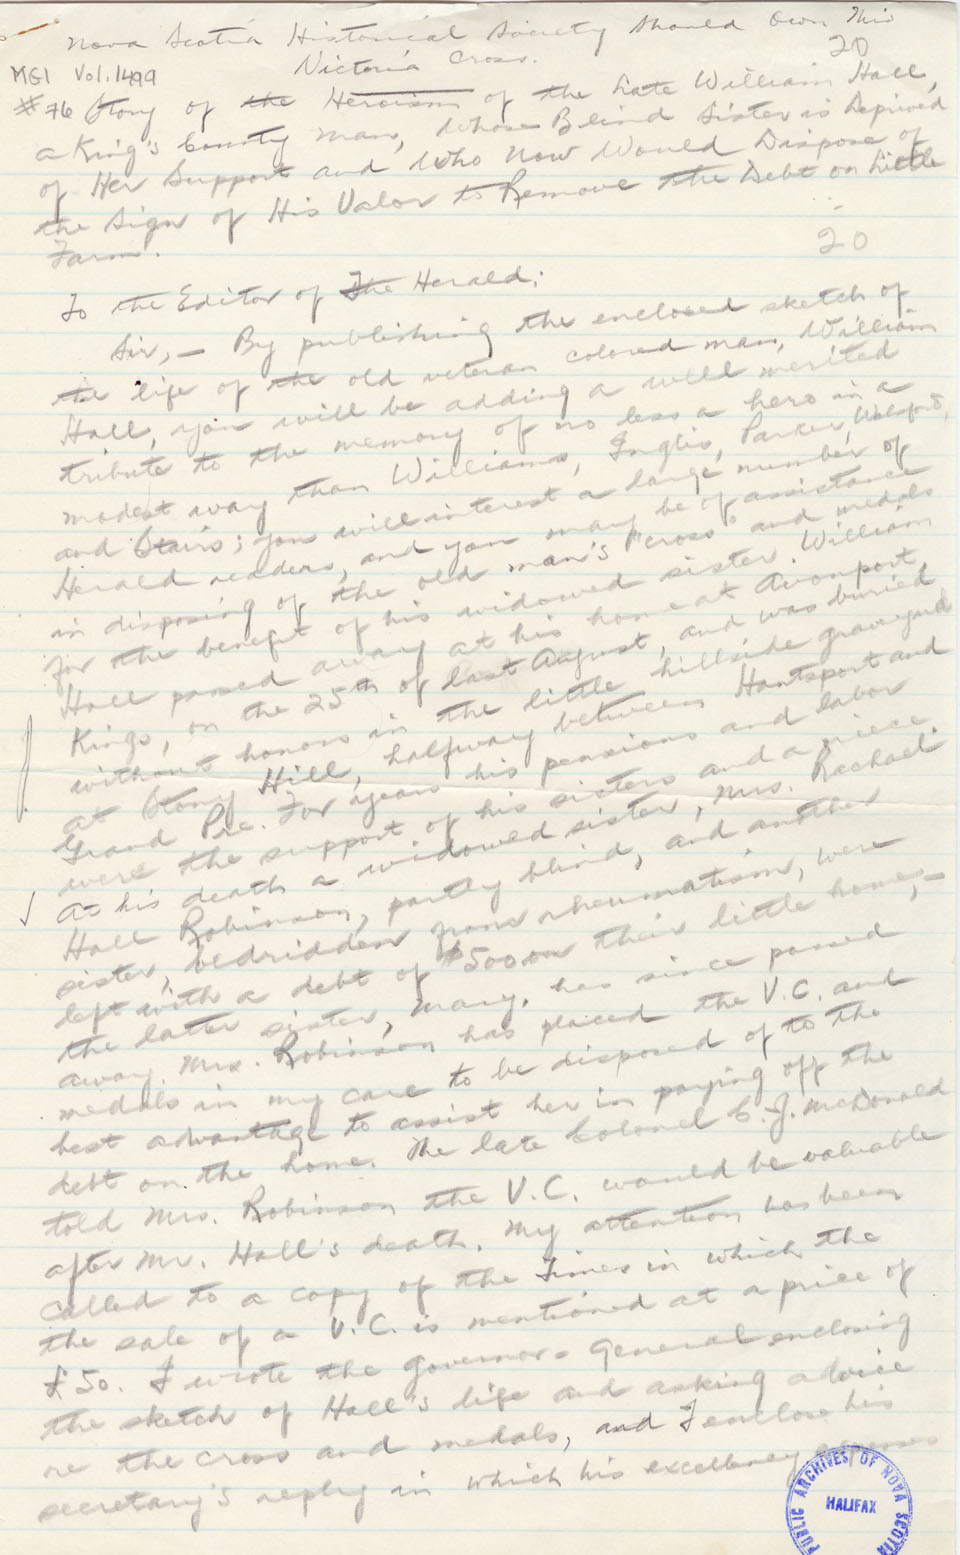 Nova Scotia Historical Society Should Own This
Victoria Cross.
20
MG1 Vol. 1499
#76 Story of the Heroism of the Late William Hall,
a King's County Man, Whose Blind Sister is Deprived
of Her Support and Who Now Would Dispose of
the Sign of His Valor to Remove the Debt on Little
Farm.
20
To the Editor of The Herald:
Sir, — By publishing the enclosed sketch of
the life of the old veteran colored man, William
Hall, you will be adding a well merited
tribute to the memory of no less a hero in a
modest way than Williams, Inglis, Parker, Welsford,
and Stairs; you will interest a large number of
Herald readers, and you may be of assistance
in disposing of the old man's "cross" and medals
for the benefit of his widowed sister. William
Hall passed away at his home at Avonport,
Kings, on the 25th of last August, and was buried
without honors in the little hillside graveyard
at Stony Hill, halfway between Hantsport and
Grand Pre. For years his pensions and labor
were the support of his sisters and a niece.
At his death a widowed sister, Mrs. Rachael
Hall Robinson, partly blind, and another
sister, bedridden from rheumatism, were
left with a debt of $500 on their little home, —
the latter sister, Mary, has since passed
away. Mrs. Robinson has placed the V.C. and
medals in my care to be disposed of to the
best advantage to assist her in paying off the
debt on the home. The late Colonel C. J. McDonald
told Mrs. Robinson the V.C. would be valuable
after Mr. Hall's death. My attention has been
called to a copy of the Times in which the
the sale of a V.C. is mentioned at a price of
£50. I wrote the Governor-General enclosing
the sketch of Hall's life and asking advice
re the cross and medals, and I enclose his
secretary's reply in which his excellency expresses
PUBLIC ARCHIVES OF NOVA SCOTIA
HALIFAX